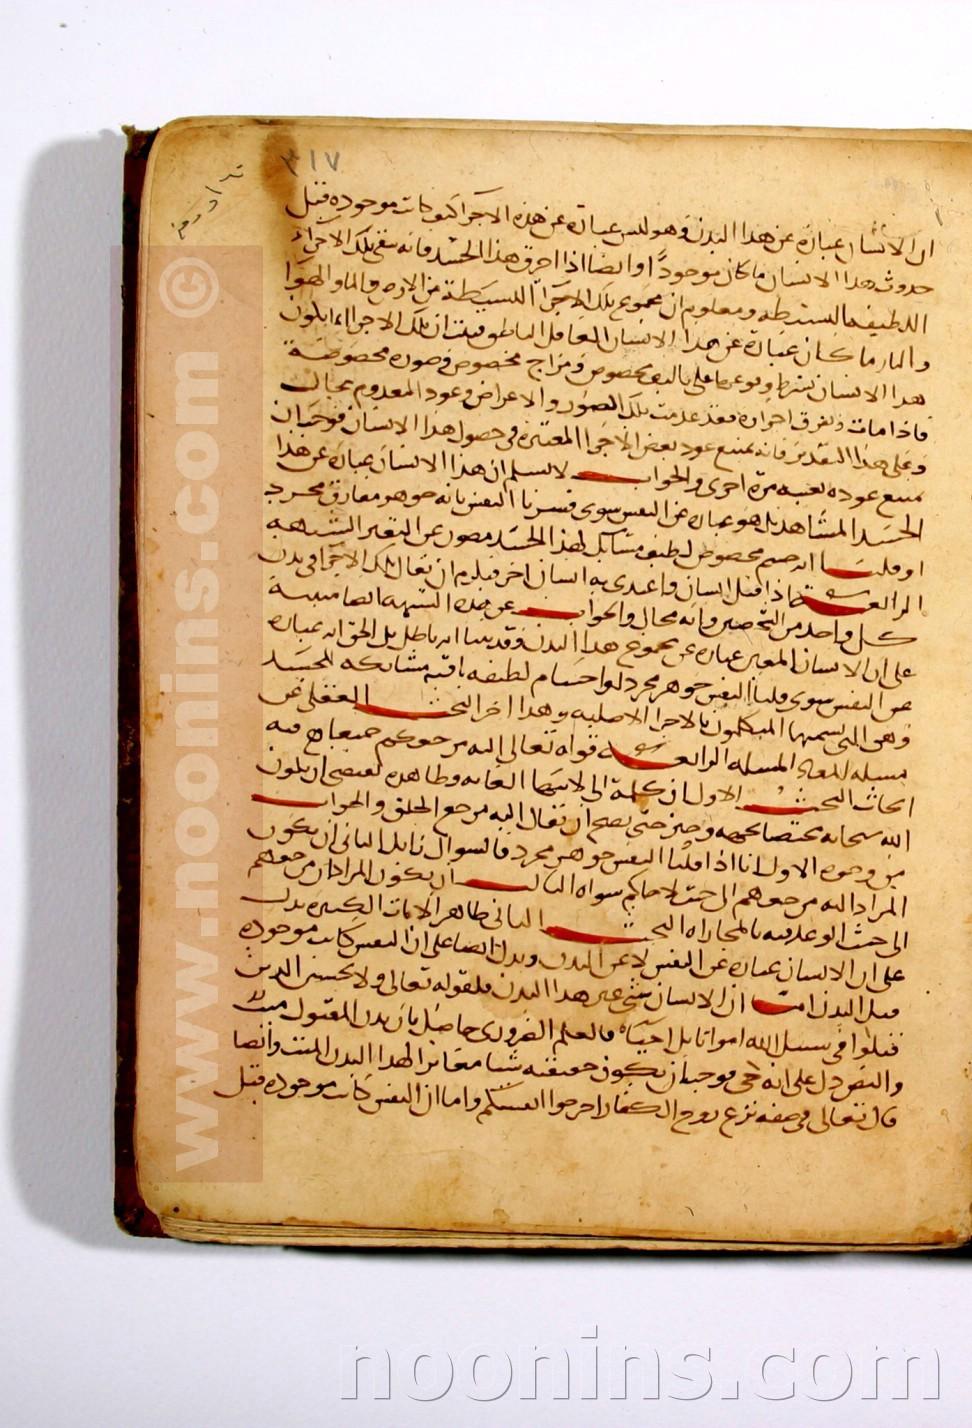 ٣١٧
ان الانسان عبارة عن هذا البدن وهو ليس عبارة عن هذه الاجزا كانت موجودة قبل
حدوث هذا الانسان ما كان موجودا وايضا اذا احرق هذا الجسد فانه تبقى تلك الاجزاء
البسيطة ومعلوم ان مجموع تلك الاجزا البسيطة من الارض والما والهوا
والنار ما كان عبارة عن هذا الانسان العاقل الناطق فثبت ان تلك الاجزا انما تكون
هذا الانسان بشرط وقوعها على تاليف مخصوص ومزاج مخصوص وصورة مخصوصة
فاذا مات وتفرق اجزاوه فقد عدمت تلك الصور والاعراض وعود المعدوم محال
وعلى هذا التقدير فانه يمتنع عود بعض الاجزا المعتبرة في حصول هذا الانسان فوجب ان
يمتنع عوده بعينه مرة اخرى والجواب لا نسلم ان هذا الانسان عبارة عن هذا
الجسد المشاهد بل هو عبارة عن النفس سوى فسرنا النفس بانه جوهر مفارق مجرد
او قلنا انه جسم مخصوص لطيف مشاكل لهذا الجسد مصون عن التغير الشبهه
الرابعة اذا قتل انسان واغتدى به انسان اخر فيلزم ان يقال تلك الاجزا في بدن
كل واحد من الشخصين وانه محال والجواب عن هذه الشبهة ايضا مبنية
على ان الانسان المعين عبارة عن مجموع هذا البدن وقد بينا انه باطل بل الحق انه عبارة
عن النفس سوى قلنا النفس جوهر مجرد او اجسام لطيفة باقية مشاكلة للجسد
وهي التي يسميها المتكلمون بالاجزا الاصلية وهذا اخر البحث العقلي عن
مسئلة المعاد المسئلة الرابعة قوله تعالى اليه مرجعكم جميعا فيه
ابحاث البحث الاول ان كلمة الى لانتها الغاية وظاهره يقتضي ان يكون
الله سبحانه مختصا بجهة وحيز حتى يصح ان يقال اليه مرجع الخلق والجواب
من وجوه الاول انا اذا قلنا النفس جوهر مجرد فالسوال زايل الثاني ان يكون
المراد اليه مرجعهم الى حيث لا حاكم سواه الثالث ان يكون المراد ان مرجعهم
الى حيث الوعد فيه بالمجازاة البحث الثاني ظاهر الايات الكثيرة يدل
على ان الانسان عبارة عن النفس لا عن البدن ويدل ايضا على ان النفس كانت موجودة
قبل البدن اما ان الانسان شي غير هذا البدن فلقوله تعالى ولا تحسبن الذين
قتلوا في سبيل الله امواتا بل احياء فالعلم الضروري حاصل بان بدن المقتول ميت
والنص دل على انه حي فوجب ان يكون حقيقته شيا مغايرا لهذا البدن الميت وايضا
قال تعالى في صفة نزع روح الكفار اخرجوا انفسكم واما ان النفس كانت موجودة قبل
www.noonins.com ©
noonins.com